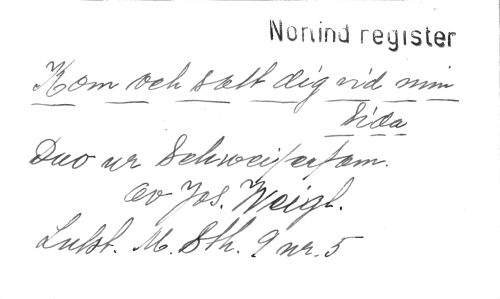 Nonind register
Kom och sätt dig vid min
sida
Duo ur Schweiserfam.
av Jos. Weigl.
Lutst. M. Sth. 9 nr. 5